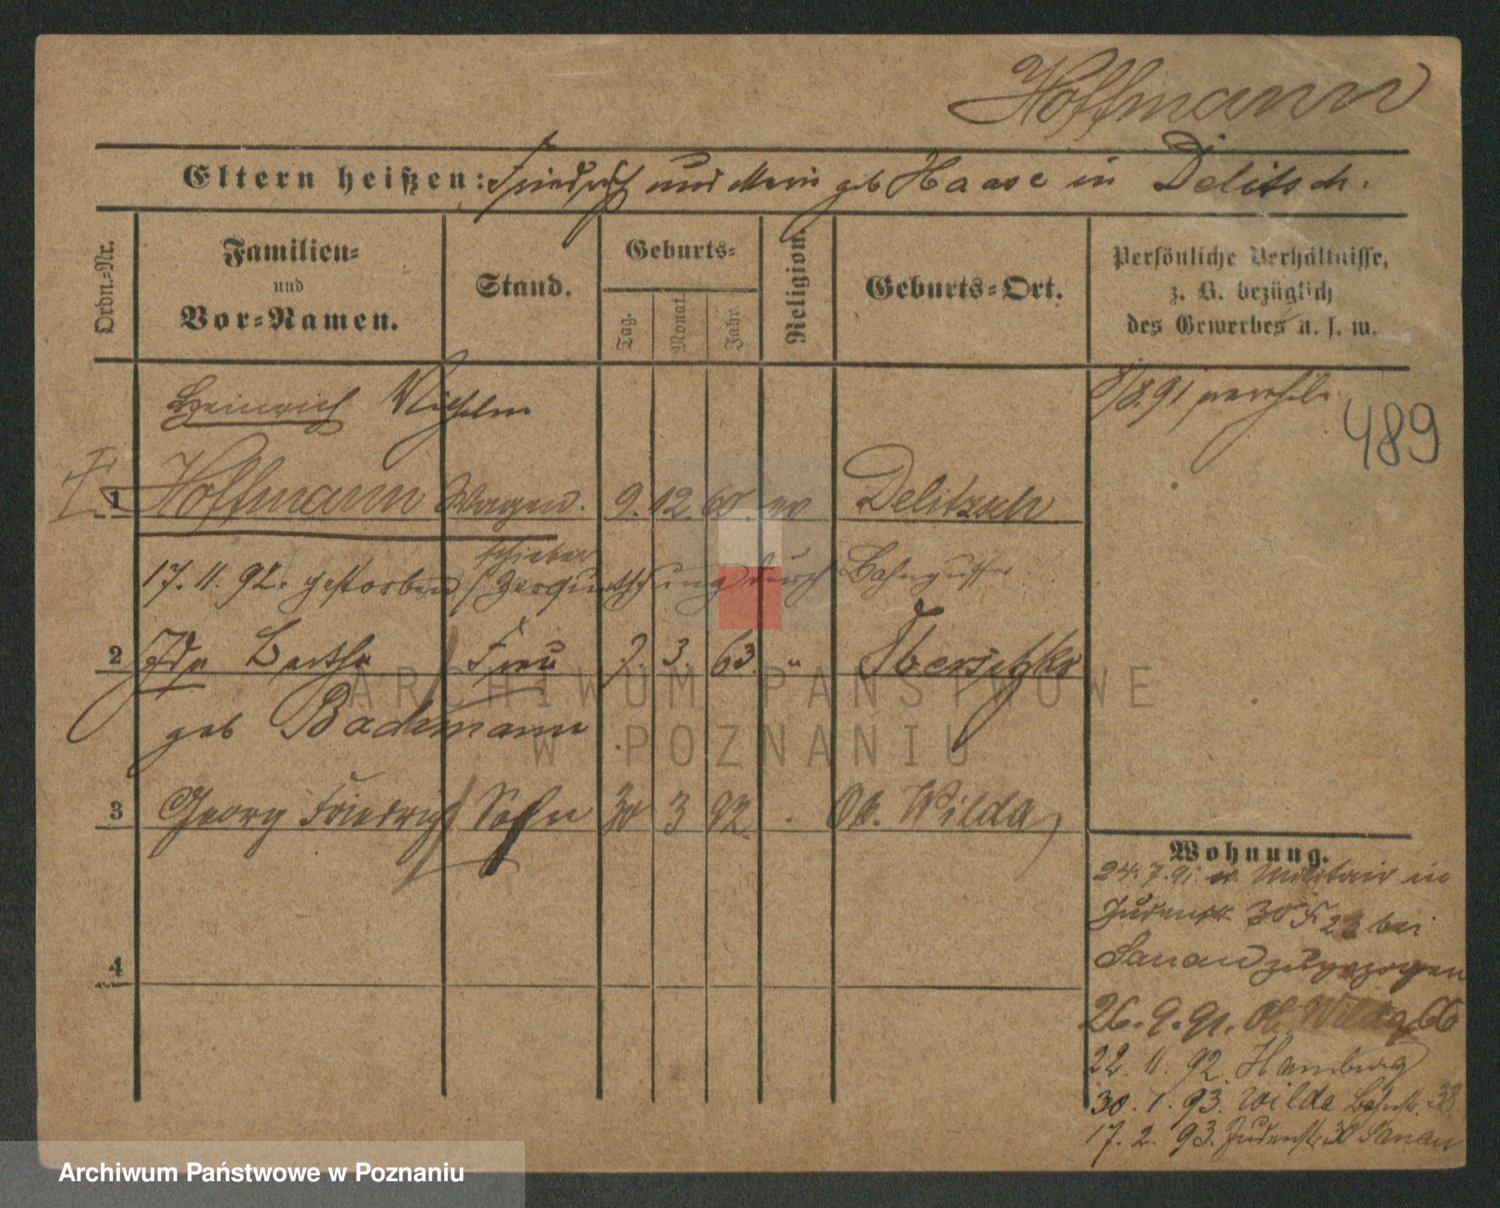 Hoffmann
Eltern heißen: Friedrich und Marie geb Haase in Delitsch.
Ordn.-Nr.
Familien-
und
Vor-Namen.
Stand.
Geburts-
Tag.
Monat.
Jahr.
Religion.
Geburts-Ort.
Persönliche Verhältnisse,
z. B. bezüglich
des Gewerbes u. s. w.
Heinrich Wilhelm
8/8.91
489
1 Hoffmann Wagen- 9. 12. 60. ev Delitzsch
schieber
17. 11. 92. gestorben durch
2 Ida Bertha Frau 7. 3. 63. "
geb Bademann
3 Georg Friedrich Sohn 30 3 92. Ob. Wilda
4
Wohnung.
24.7.91. v. Militair in
Judenstr 30 bei
zugezogen
26.9.91. Ob. Wilda 66
22. 11. 92. Hamburg
30. 1. 93. Wilda 38
17. 2. 93. Judenstr. 30
ARCHIWUM PAŃSTWOWE
W POZNANIU
Archiwum Państwowe w Poznaniu